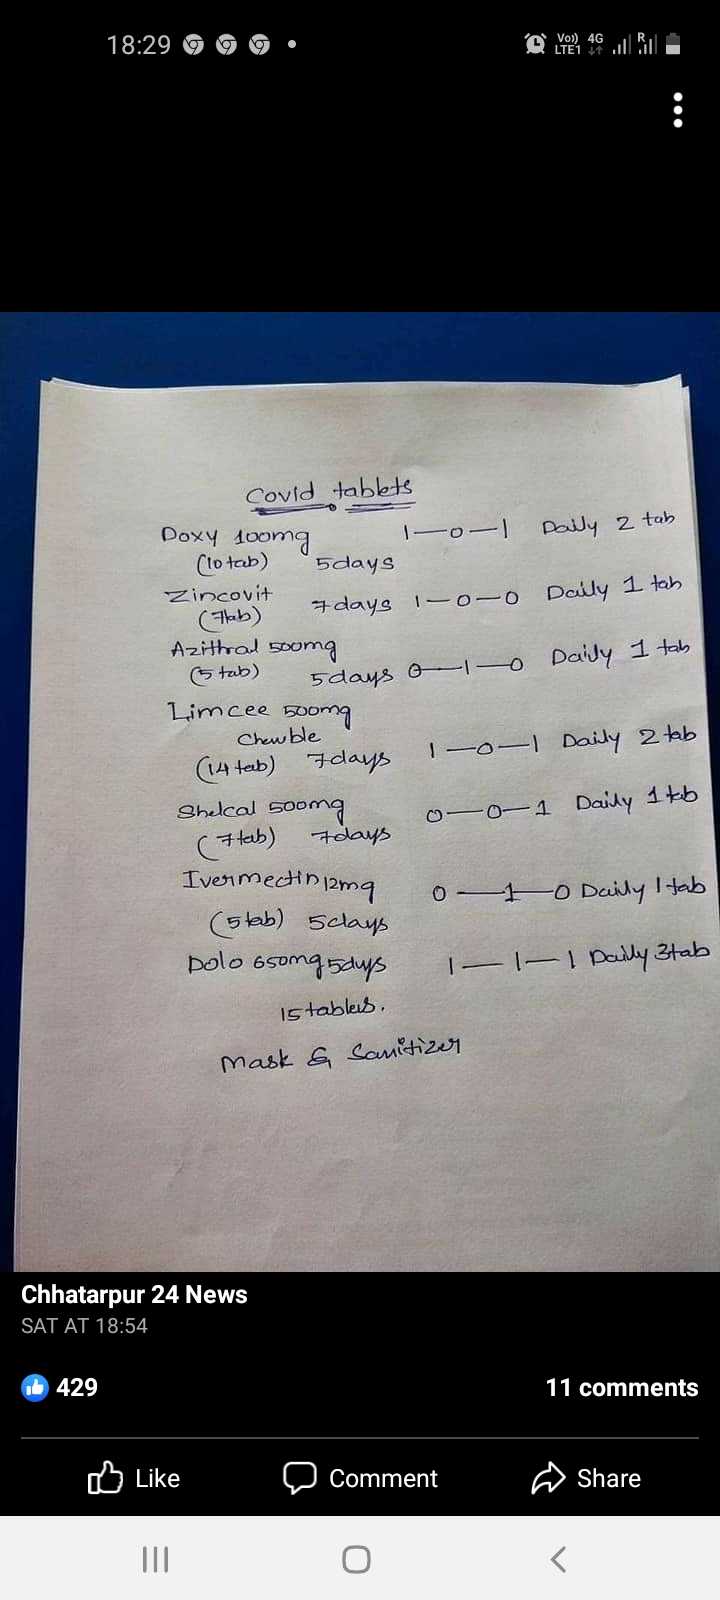 18:29
Vo)) 4G R
LTE1
Covid tablets
Doxy 100mg 1—0—1 Daily 2 tab
(10 tab) 5days
Zincovit 7days 1—0—0 Daily 1 tab
(7tab)
Azithral 500mg
(5 tab) 5days 0—1—0 Daily 1 tab
Limcee 500mg
Chewble
(14 tab) 7days 1—0—1 Daily 2 tab
Shelcal 500mg 0—0—1 Daily 1 tab
(7tab) 7days
Ivermectin 12mg 0—1—0 Daily 1 tab
(5 tab) 5days
Dolo 650mg 5dys 1—1—1 Daily 3tab
15 tablets.
Mask & Sanitizer
Chhatarpur 24 News
SAT AT 18:54
429 11 comments
Like Comment Share